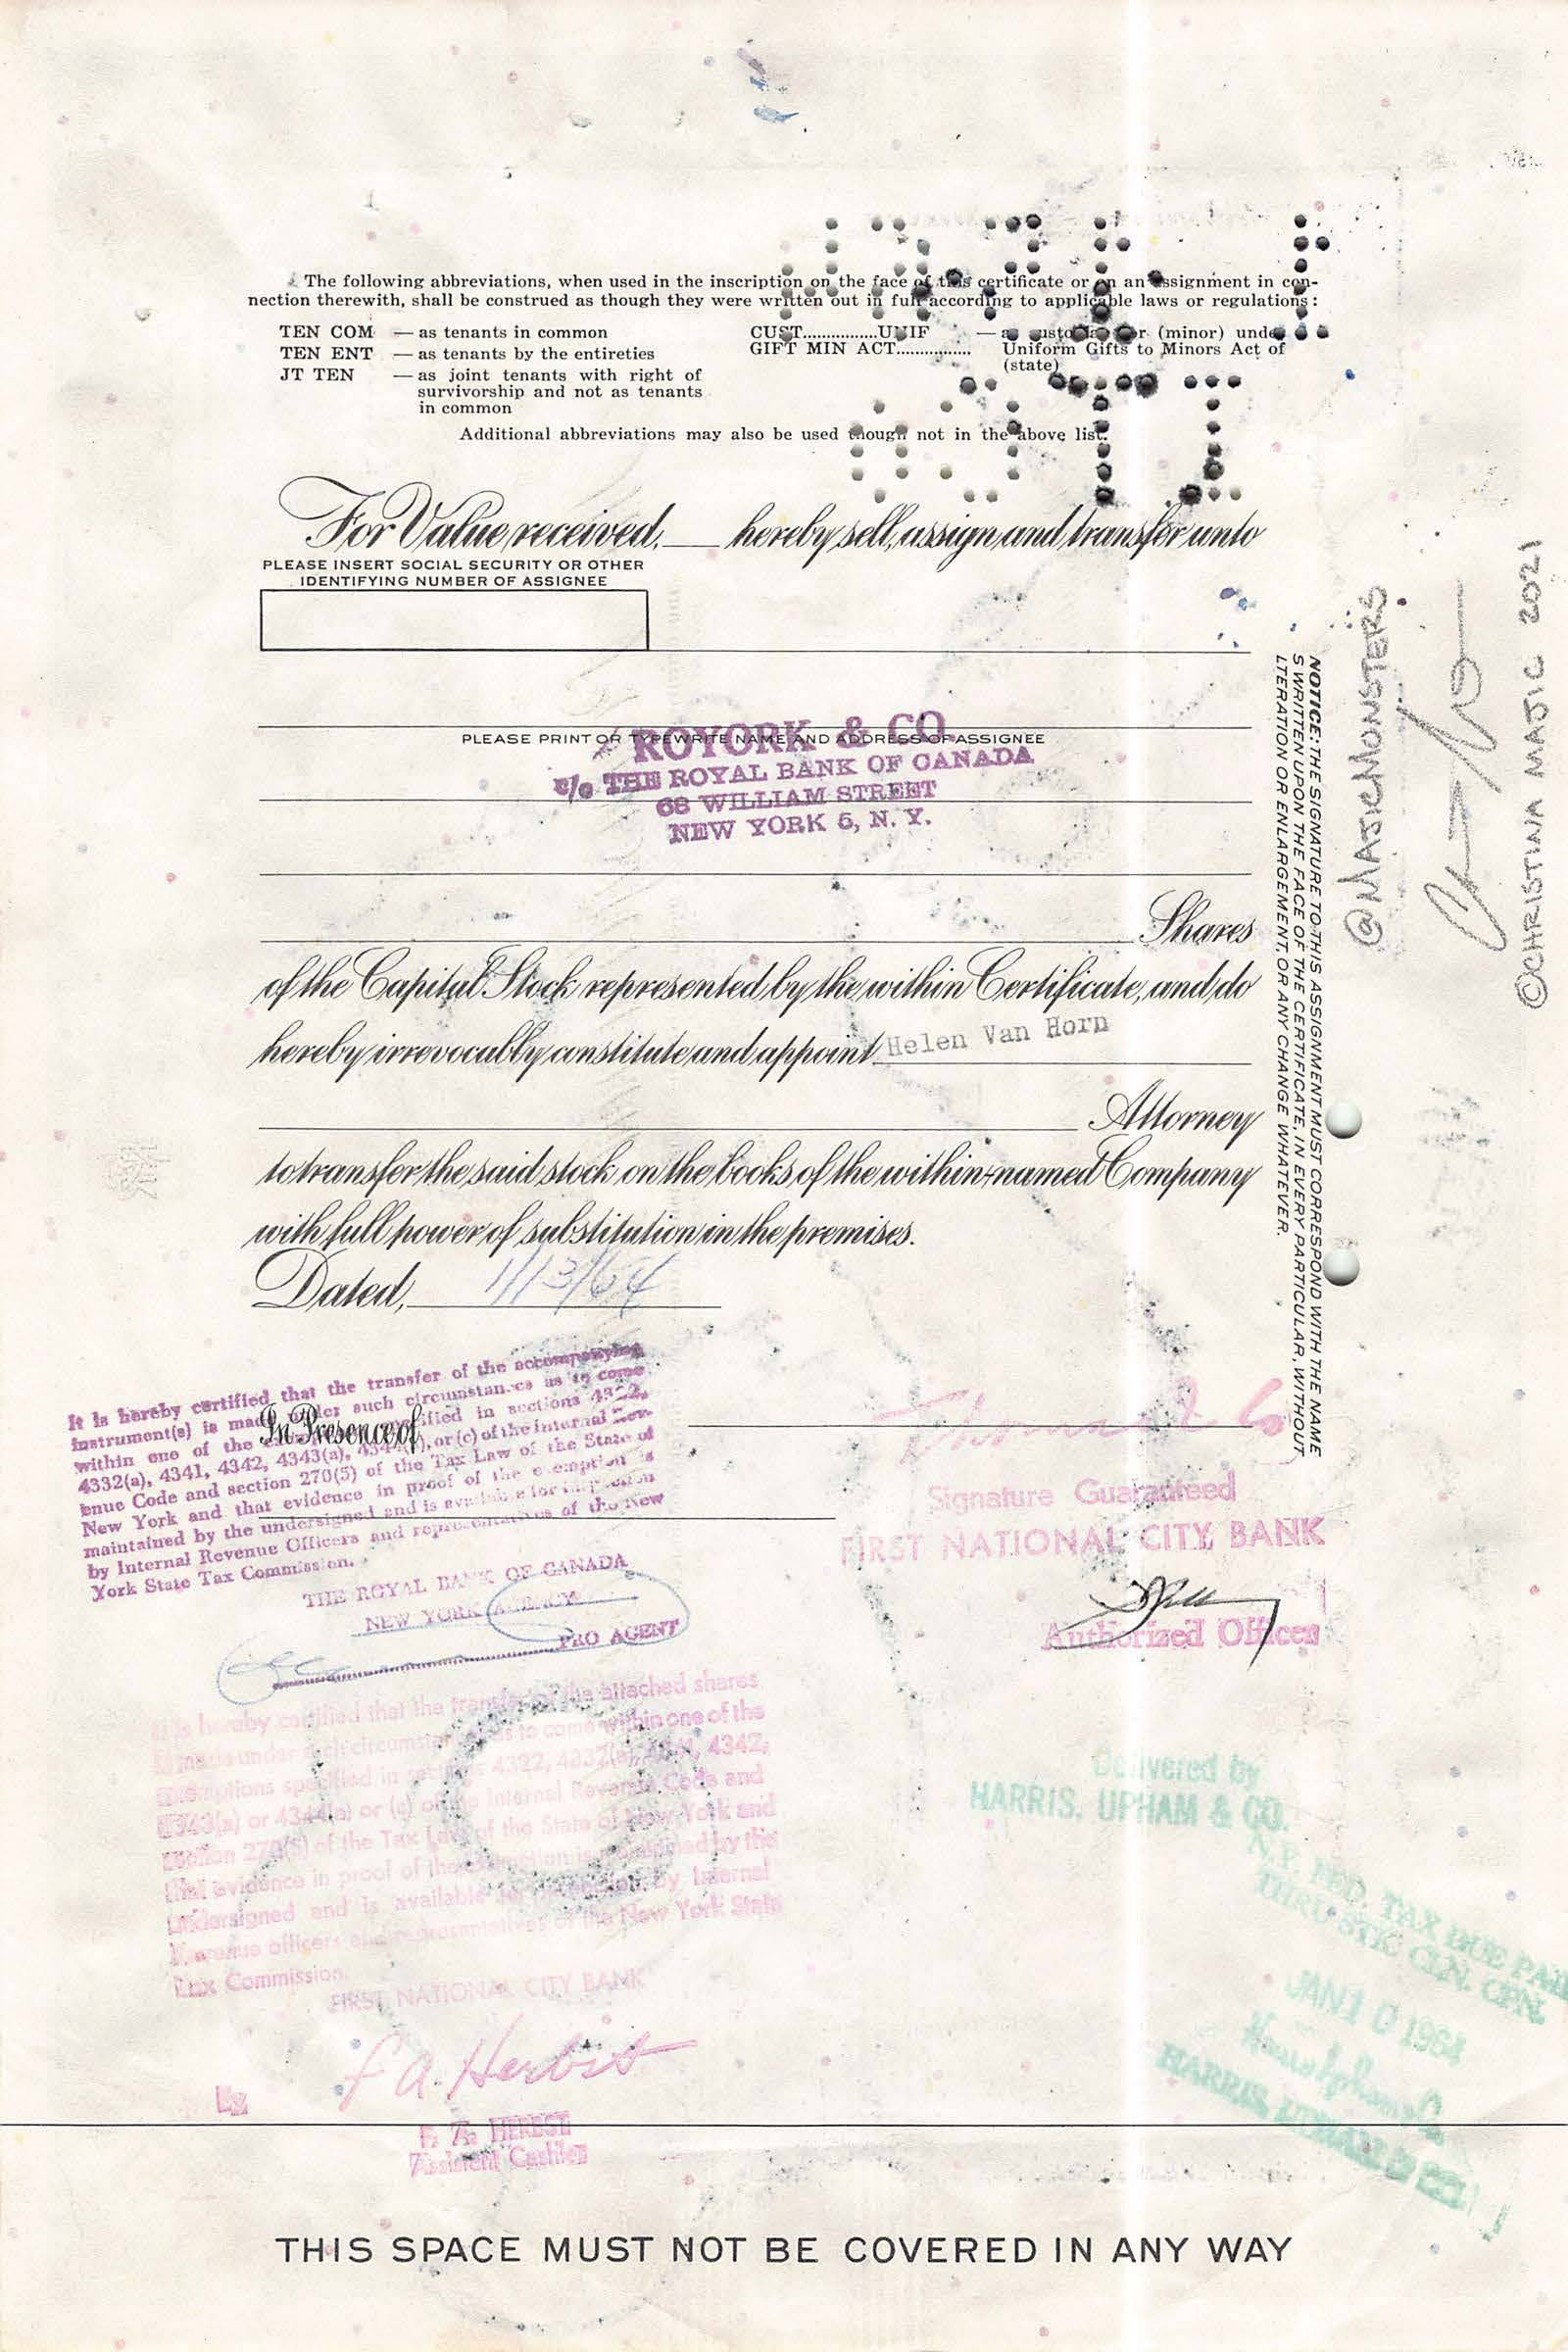 The following abbreviations, when used in the inscription on the face of this certificate or on an assignment in con-
nection therewith, shall be construed as though they were written out in full according to applicable laws or regulations:
TEN COM — as tenants in common
TEN ENT — as tenants by the entireties
JT TEN — as joint tenants with right of
survivorship and not as tenants
in common
CUST................UNIF — as custodian for (minor) under
GIFT MIN ACT................ Uniform Gifts to Minors Act of
(state)
Additional abbreviations may also be used though not in the above list.
For Value received, ____ hereby sell, assign and transfer unto
PLEASE INSERT SOCIAL SECURITY OR OTHER
IDENTIFYING NUMBER OF ASSIGNEE
PLEASE PRINT OR TYPEWRITE NAME AND ADDRESS OF ASSIGNEE
ROYORK & CO.
c/o THE ROYAL BANK OF CANADA
68 WILLIAM STREET
NEW YORK 5, N. Y.
Shares
of the Capital Stock represented by the within Certificate, and do
hereby irrevocably constitute and appoint Helen Van Horn
Attorney
to transfer the said stock on the books of the within-named Company
with full power of substitution in the premises.
Dated, 1/13/64
In Presence of
It is hereby certified that the transfer of the accompanying
instrument(s) is made under such circumstances as to come
within one of the specified in sections 4322,
4332(a), 4341, 4342, 4343(a), 4344(a), or (c) of the Internal Rev-
enue Code and section 270(5) of the Tax Law of the State of
New York and that evidence in proof of the exemption is
maintained by the undersigned and is available for inspection
by Internal Revenue Officers and representatives of the New
York State Tax Commission.
THE ROYAL BANK OF CANADA
NEW YORK AGENCY
PRO AGENT
Signature Guaranteed
FIRST NATIONAL CITY BANK
Authorized Officer
It is hereby certified that the transfer of the attached shares
is made under such circumstances as to come within one of the
exemptions specified in sections 4322, 4332(a), 4341, 4342,
4343(a) or 4344(a) or (c) of the Internal Revenue Code and
section 270(5) of the Tax Law of the State of New York and
that evidence in proof of the exemption is maintained by the
undersigned and is available for inspection by Internal
Revenue officers and representatives of the New York State
Tax Commission.
FIRST NATIONAL CITY BANK
F A. Herbst
By
F. A. HERBST
Assistant Cashier
Delivered by
HARRIS, UPHAM & CO.
N.Y. FED. TAX DUE PAID
THRU STK. CLN. CPN.
JAN 10 1964
HARRIS, UPHAM & CO.
NOTICE: THE SIGNATURE TO THIS ASSIGNMENT MUST CORRESPOND WITH THE NAME
S WRITTEN UPON THE FACE OF THE CERTIFICATE, IN EVERY PARTICULAR, WITHOUT
LTERATION OR ENLARGEMENT, OR ANY CHANGE WHATEVER.
@MAJICMONSTERS
©CHRISTINA MAJIC 2021
THIS SPACE MUST NOT BE COVERED IN ANY WAY